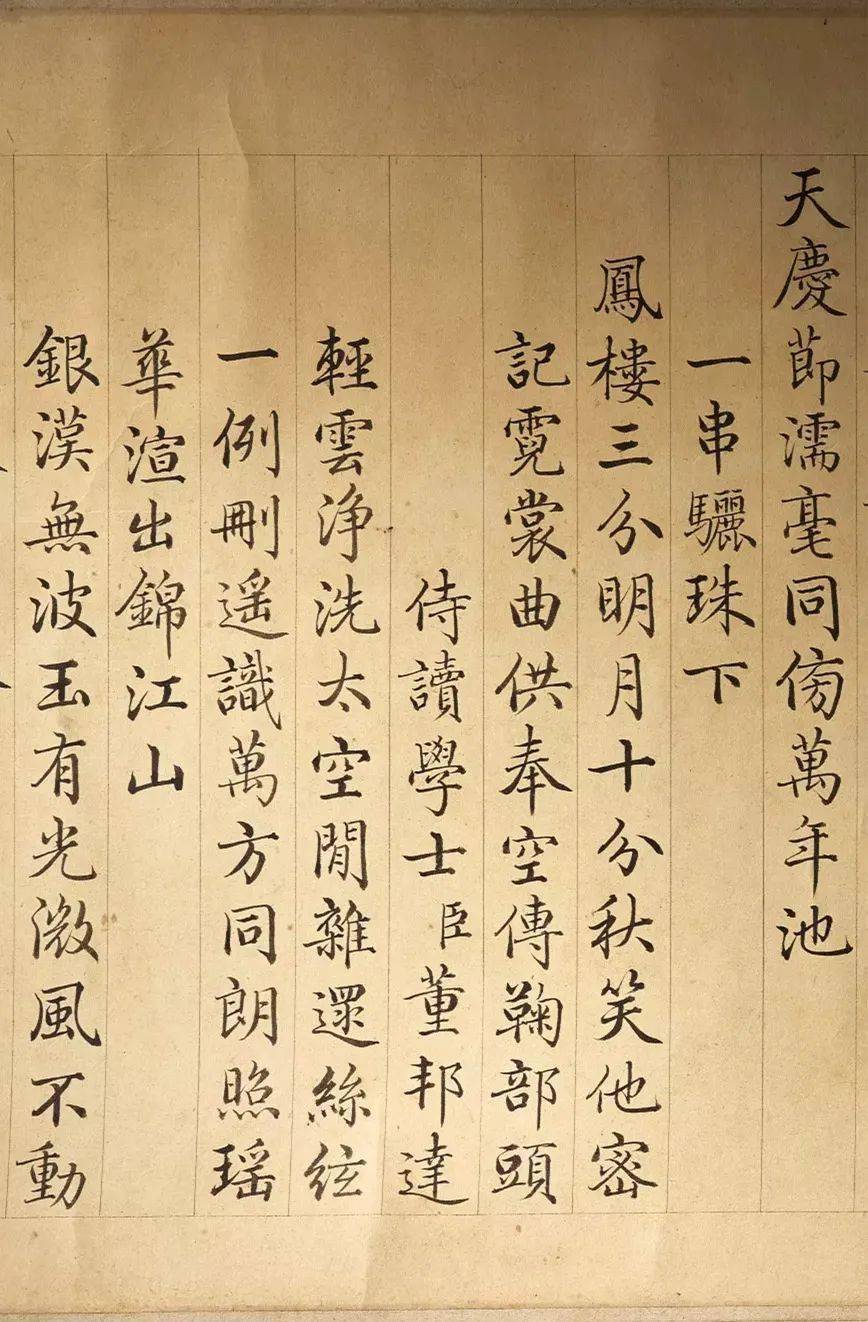 天慶節濡毫同傍萬年池
一串驪珠下
鳳樓三分明月十分秋笑他密
記霓裳曲供奉空傳鞠部頭
侍讀學士臣董邦達
輕雲浄洗太空閒雜遝絲絃
一例刪遥識萬方同朗照瑶
華渲出錦江山
銀漢無波玉有光微風不動